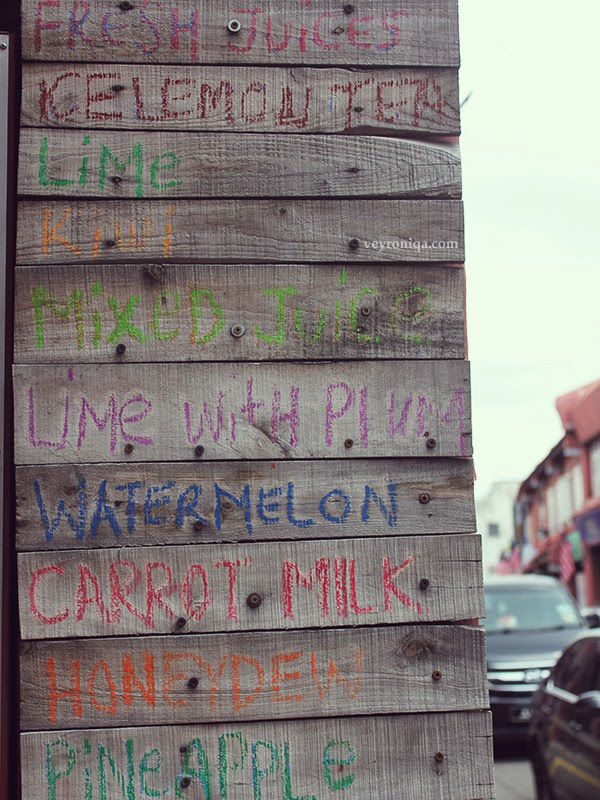 FRESH JUiCES
ICELEMON TEA
LiMe
Kiwi
veyroniqa.com
MixeD Juice
LiMe with Plum
WATERMELON
CARROT MILK
HONEYDEW
PiNeAPPLe